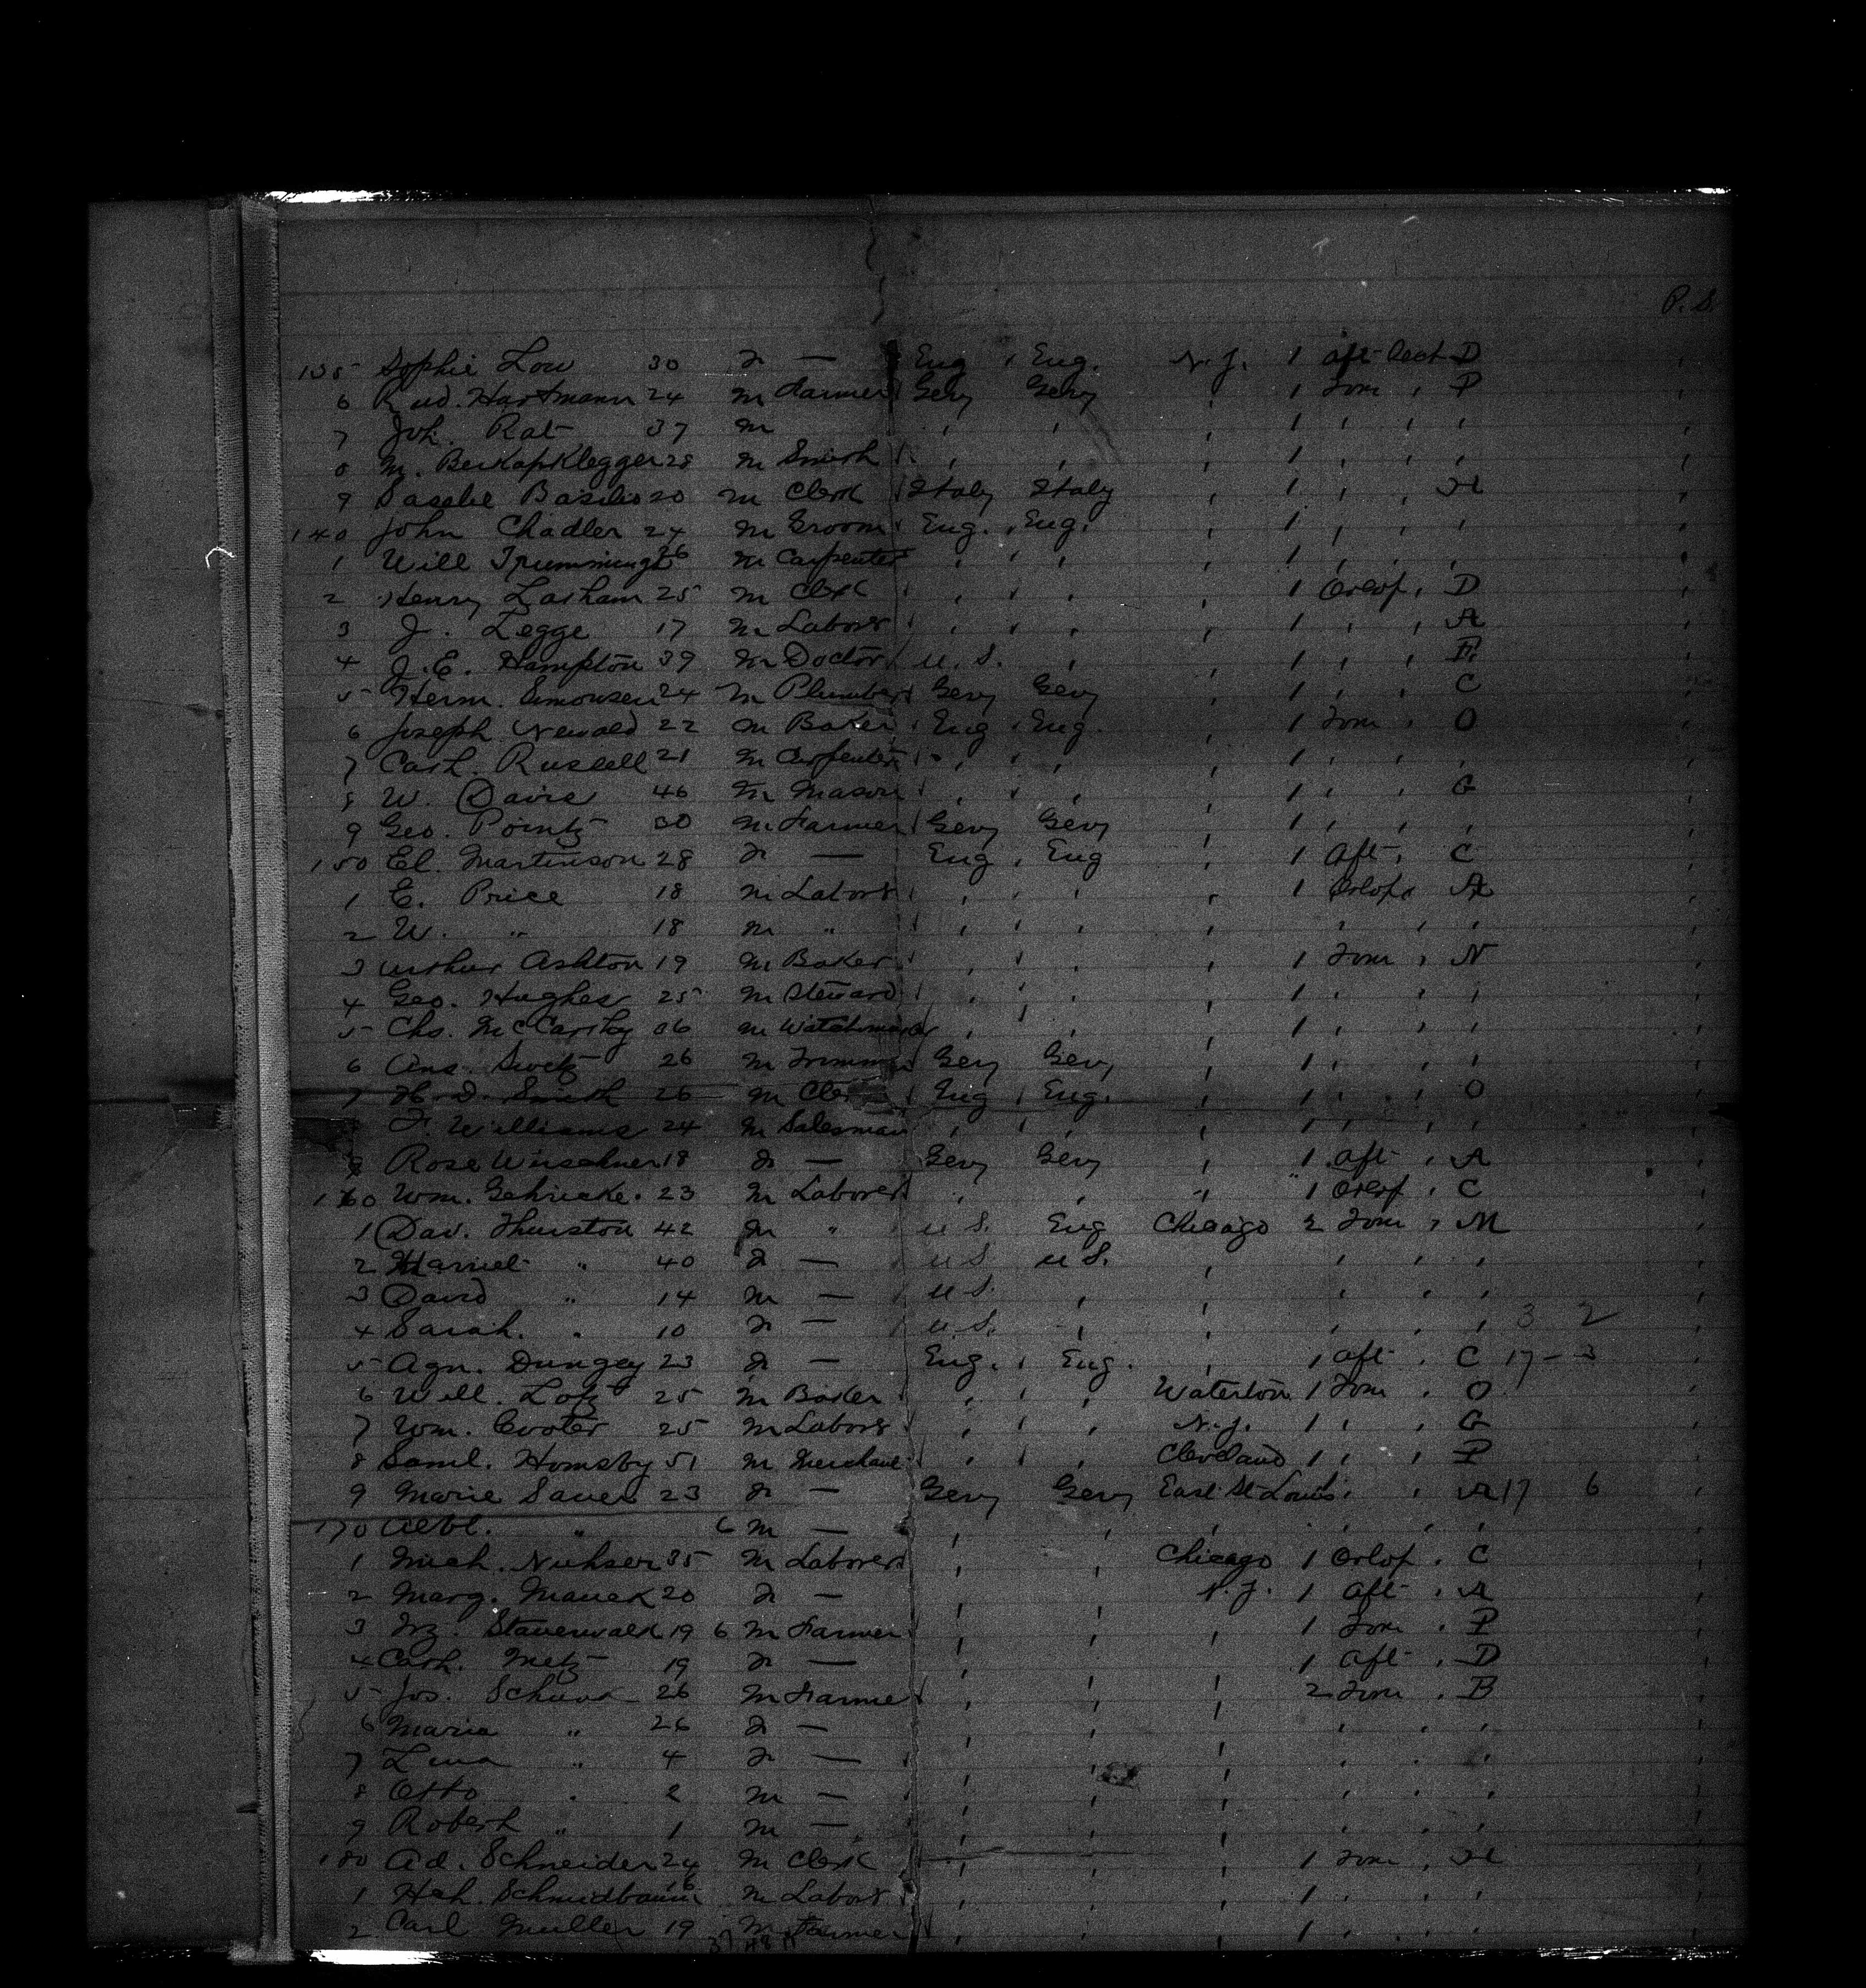 P. S.
135 Sophie Low 30 F — Eng , Eng. N.J. 1 aft Deck D
6 Rud. Hartmann 24 m Farmer Gery Gery , 1 Form , P
7 Joh. Rat 37 m , , , 1 , , ,
8 M. 28 m Smith , , , 1 , , ,
9 Basilio 20 m Clerk Italy Italy , 1 , , H
140 John Chadler 24 m Groom Eng. , Eng. , 1 , , ,
1 Will 26 m Carpenter , , , , 1 , , ,
2 Henry Latham 25 m Clerk , , , , 1 Orlop , D
3 J. Legge 17 m Labors , , , , 1 , , A
4 J. E. Hampton 39 m Doctor U. S. , , 1 , , E
5 Herm. Simonsen 24 m Plumber Gery Gery , 1 , , C
6 Joseph Newald 22 m Baker Eng , Eng. , 1 Form , O
7 Cash. Russell 21 m Carpenter , , , , 1 , , ,
8 W. Davis 46 m Mason , , , , 1 , , G
9 Geo. Pointz 30 m Farmer Gery Gery , 1 , , ,
150 El. Martinson 28 F — Eng , Eng , 1 Aft , C
1 E. Price 18 m Labors , , , , 1 Orlop , A
2 W. " 18 m " , , , , , , ,
3 Arthur Ashton 19 m Baker , , , , 1 Form , N
4 Geo. Hughes 25 m Steward , , , , 1 , , ,
5 Chs. McCarthy 36 m Watchmaker , , , 1 , , ,
6 Ans. 26 m Trimmer Gery Gery , 1 , , ,
7 H. D. Smith 26 m Cle Eng , Eng. , 1 , , O
F. Williams 24 m Salesman , , , , 1 , , ,
9 Rose Wirschner 18 F — Gery Gery , 1 aft , A
160 Wm. Gehricke. 23 m Laborer , , " 1 Orlop , C
1 Dav. Thurston 42 m " U S. Eng Chicago 2 Form , M
2 Harriet " 40 F — U S U S. , , , ,
3 David " 14 m — U S. , , , , ,
4 Sarah. " 10 F — U. S. , , , , , 3 2
5 Agn. Dungey 23 F — Eng. , Eng. , 1 aft , C 17 - 3
6 Will. Lotz 25 m Baker , , , Waterton 1 Form , O
7 Wm. Cooter 25 m Labors , , , N.J. 1 , , G
8 Saml. Homsby 51 m Merchant , , , Cleveland 1 , , P
9 Marie Sauer 23 F — Gery Gery East St Louis , , A 17 6
170 " 6 m — , , , , , ,
1 Mich. 35 m Laborer , , Chicago 1 Orlop , C
2 Marg. Mauck 20 F — , , N.J. 1 Aft , A
3 Frz. Stauerwald 19 6 m Farmer , , , 1 Form , P
4 Cash. Metz 19 F — , , 1 Aft , D
5 Jos. 26 m Farmer , , , 2 Form , B
6 Maria " 26 F — , , , , , ,
7 Lina " 4 F — , , , , , ,
8 Otto " 2 m — , , , , , ,
9 Robert " 1 m — , , , , , ,
180 Ad. Schneider 24 m Clerk , , , 1 Form , H
1 Hch. Schmidbaum 26 m Labors , , , 1 , , ,
2 Carl Muller 19 m Farmer , , , 1 , , ,